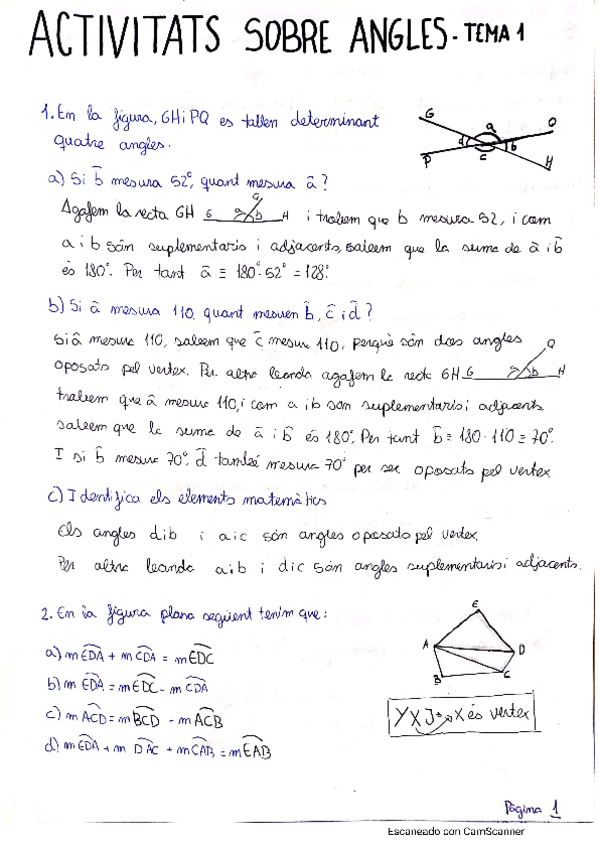 ACTIVITATS SOBRE ANGLES - TEMA 1
1. En la figura, GH i PQ es tallen determinant
quatre angles.
G a Q
d b
P c H
a) Si b̂ mesura 52°, quant mesura â?
Agafem la recta GH G a b H Q i trobem que b mesura 52, i com
a i b són suplementaris i adjacents, sabem que la suma de â i b̂
és 180°. Per tant â = 180° - 52° = 128°
b) Si â mesura 110, quant mesuren b̂, ĉ i d̂?
Si â mesura 110, sabem que ĉ mesura 110, perquè són dos angles
oposats pel vertex. Per altre banda agafem la recta GH G b H Q
trobem que â mesura 110, i com a i b són suplementaris i adjacents
sabem que la suma de â i b̂ és 180°. Per tant b̂ = 180 - 110 = 70°.
I si b̂ mesura 70°, d̂ també mesura 70° per ser oposats pel vertex
c) Identifica els elements matemàtics
Els angles d i b i a i c són angles oposats pel vertex.
Per altre banda a i b i d i c són angles suplementaris i adjacents.
2. En la figura plana següent tenim que:
E
A D
B C
a) m EDA + m CDA = m EDC
b) m EDA = m EDC - m CDA
c) m ACD = m BCD - m ACB
d) m EDA + m DAC + m CAB = m EAB
YXJ → X és vertex
Pàgina 1
Escaneado con CamScanner